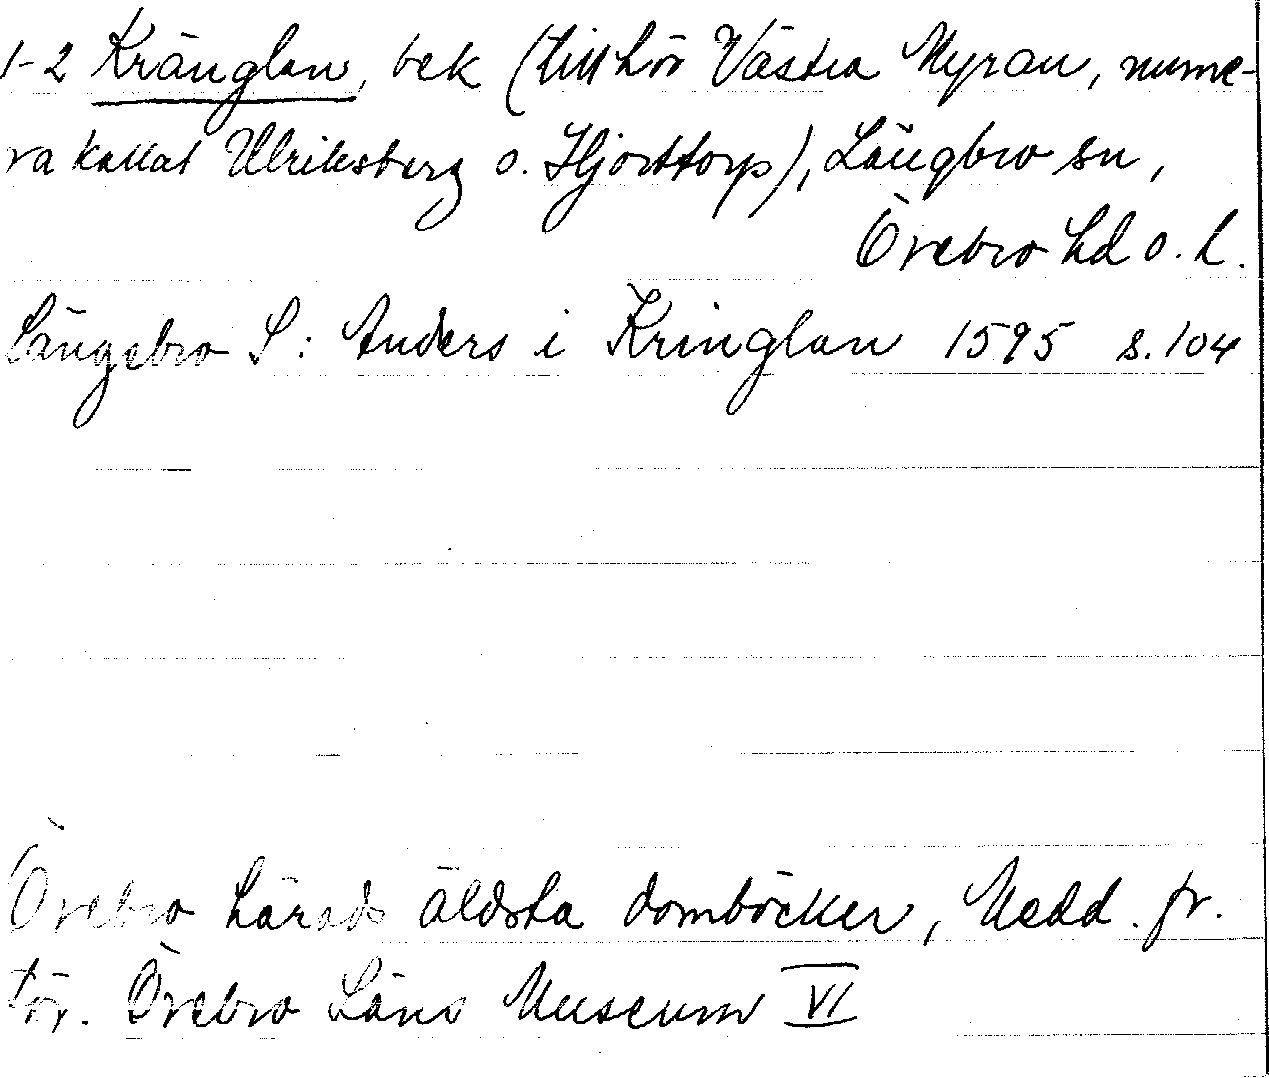 1-2 Kränglan, bek (tillhör Västra Myran, nume-
ra kallat Ulriksberg o. Hjorttorp), Längbro sn,
Örebro hd o. l.
Längebro S: Anders i Kringlan 1595 s. 104
Örebro härads äldsta domböcker, Medd. fr.
för. Örebro Läns Museum VI